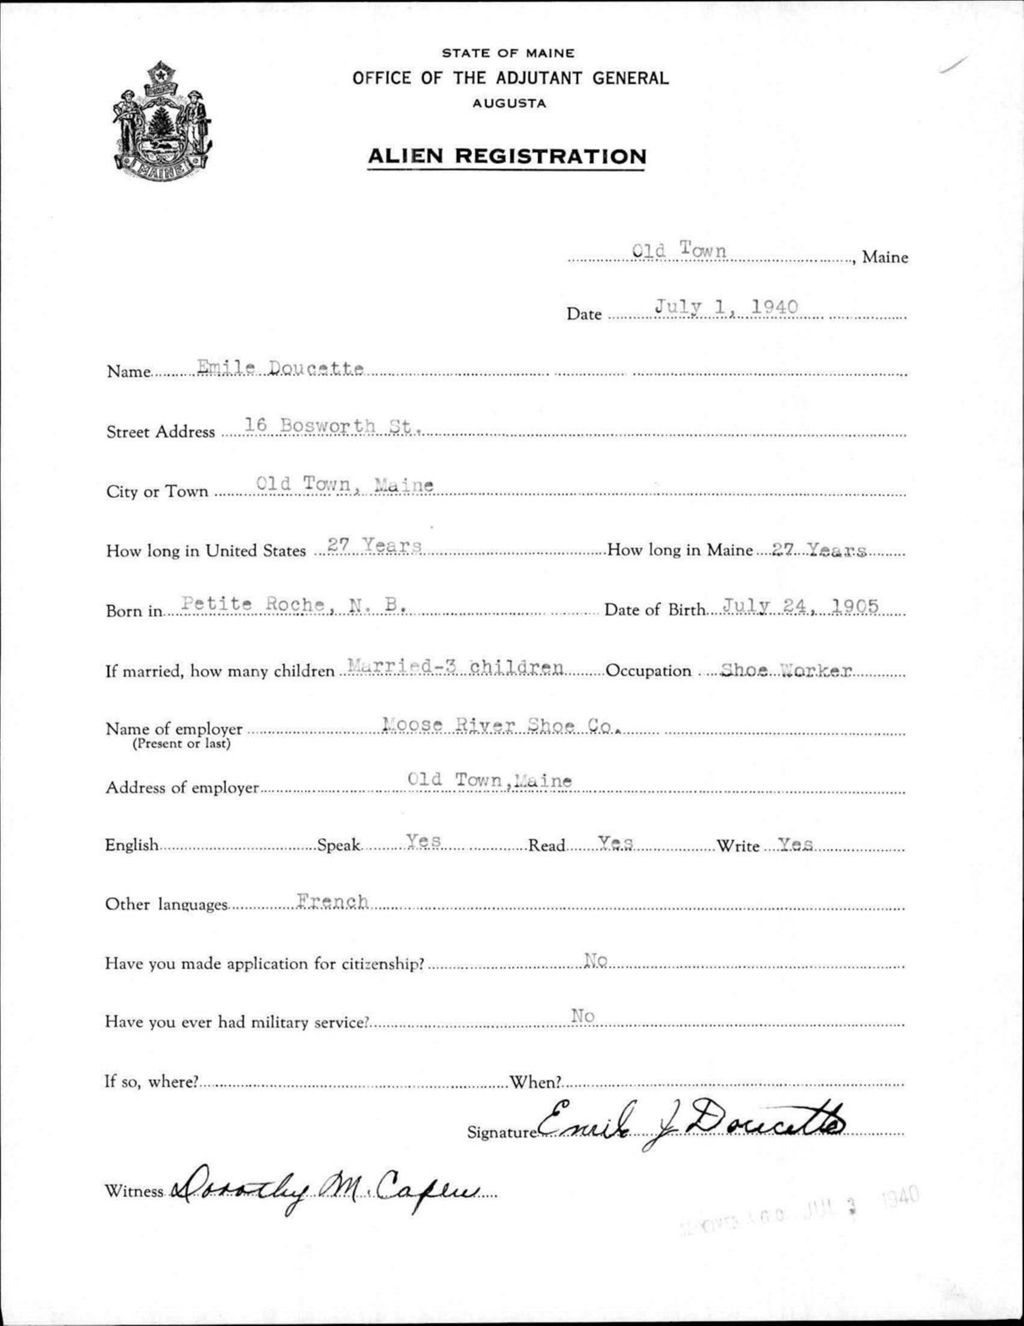 STATE OF MAINE
OFFICE OF THE ADJUTANT GENERAL
AUGUSTA
ALIEN REGISTRATION
MAINE
Old Town, Maine
Date July 1, 1940
Name Emile Doucette
Street Address 16 Bosworth St.
City or Town Old Town, Maine
How long in United States 27 Years How long in Maine 27 Years
Born in Petite Roche, N. B. Date of Birth July 24, 1905
If married, how many children Married-3 children Occupation Shoe Worker
Name of employer Moose River Shoe Co.
(Present or last)
Address of employer Old Town, Maine
English Speak Yes Read Yes Write Yes
Other languages French
Have you made application for citizenship? No
Have you ever had military service? No
If so, where? When?
Signature Emile J Doucette
Witness Dorothy M. Capen
A.G.O. JUL 3 1940